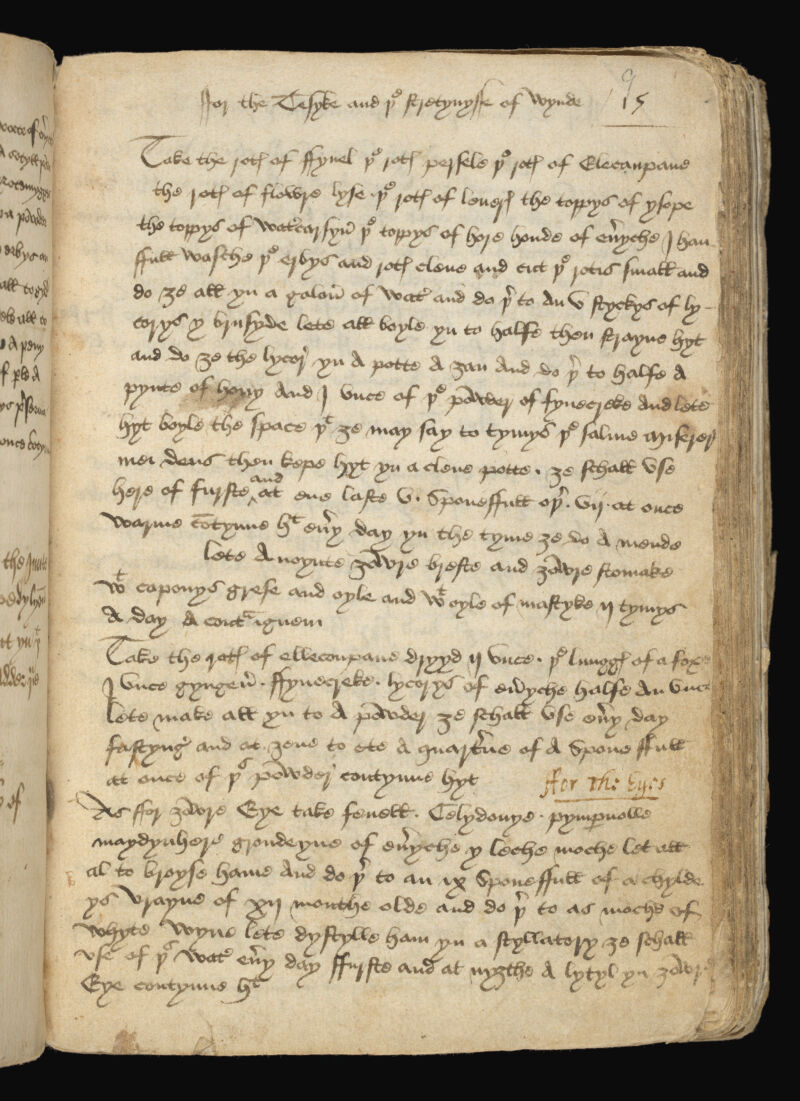 ffor the Tesyke and þe stretnysse of wynde
95
Take the rote of ffynel þe rote persele þe rote of Elecanpane
the rote of flowre lyse · þe rote of lovers the toppys of ysope
the toppys of watercarsyn þe toppys of hore honde of eueryche j han
ffull wasche þe erbys and rote clene and cut þe rotis small and
do ȝe all yn a galon of water and do þer to An v styckys of ly
corys y brusyde lete all boyle yn to halfe then strayne hyt
and do ȝe the lycor yn A potte A ȝan And do þer to halfe A
pynte of hony And j vnce of þe powder of fynecreke And lete
hyt boyle the space þt ȝe may say to tymys þe salme miserer
mei deus then kepe hyt yn a clene potte · ȝe schall vse
here of furste and at eue laste v · Sponeffull oþer · vij · at once
warme contynue ht euery day yn the tyme ȝe do A mende
lete Anoynte ȝowre breste and ȝowre stomake
wt caponys grese and oyle and wt oyle of mastyke ij tymys
A day A contra ignem
Take the rote of ellecanpane dryyd ij vnce · þe lunggs of a fox
j vnce gynger · ffynecreke · lycorys of eueryche halfe An vnce
lete make all yn to A powder ȝe schall vse euery day
fastyng and at ȝeue to ete A quarterne of A Spone ffull
at once of þs powder contynue hyt
ffor the Eyes
As ffor ȝowre Eye take fenell · Celydonye · pympernolle
maydynhere grondeyne of eueryche y leche moche let all
al to broyse hame And do þer to an ix Sponeffull of a chylde
ys vrayne of xij monthe olde and do þer to as moche of
whyte wyne lete dystylle ham yn a styllatory ȝe schall
vse of þs water euery day ffurste and at nyȝthe A lytyl yn ȝowr
Eye contynue ht